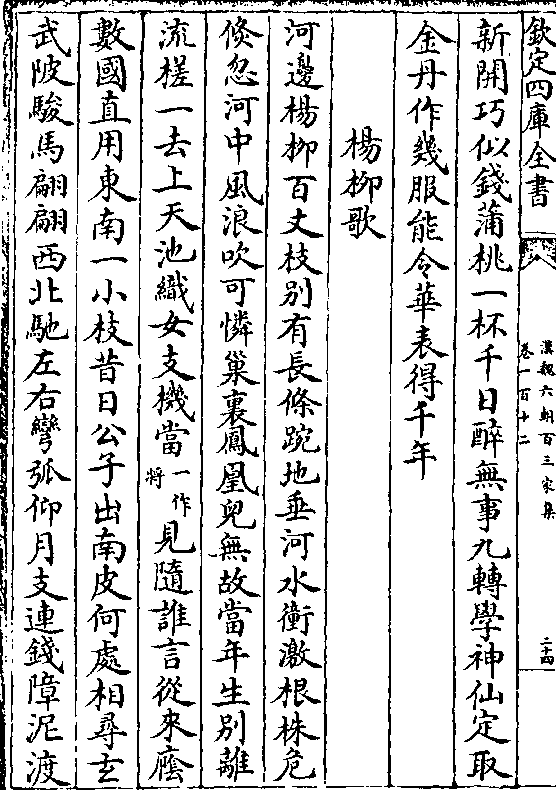 欽定四庫全書
漢魏六朝百三家集
卷一百十二
二十四
新開巧似錢蒲桃一杯千日醉無事九轉學神仙定取
金丹作幾服能令華表得千年
楊柳歌
河邊楊柳百丈枝别有長條踠地垂河水衝激根株危
倐忽河中風浪吹可憐巢裏鳳凰兒無故當年生别離
流槎一去上天池織女支機當一作將見隨誰言從來䕃
數國直用東南一小枝昔日公子出南皮何處相尋𤣥
武陂駿馬翩翩西北馳左右彎弧仰月支連錢障泥渡